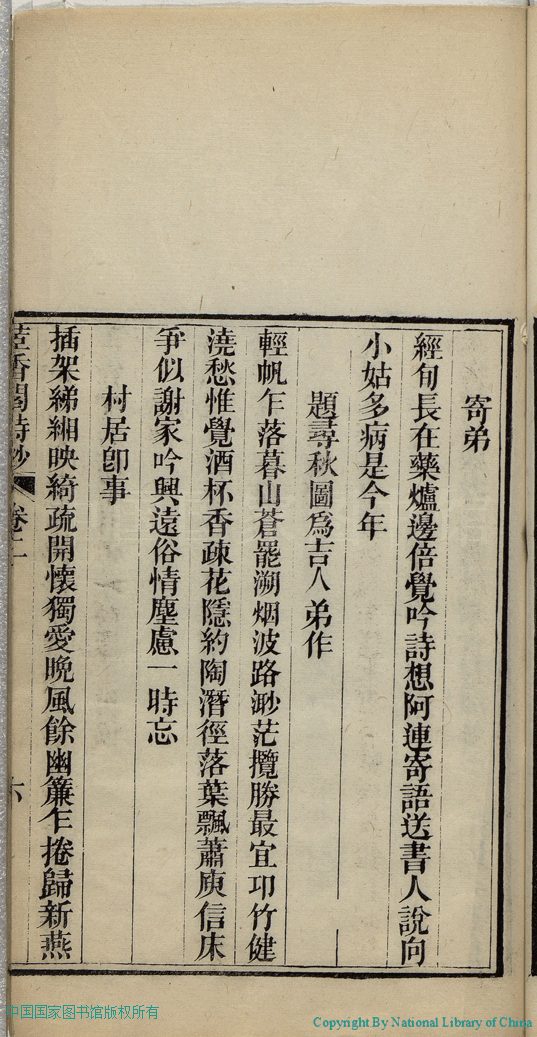 寄弟
經旬長在藥爐邊倍覺吟詩想阿連寄語送書人說向
小姑多病是今年
題尋秋圖爲吉人弟作
輕帆乍落暮山蒼罷溯烟波路渺茫攬勝最宜卭竹健
澆愁惟覺酒杯香疎花隱約陶潛徑落葉飄蕭庾信床
爭似謝家吟興遠俗情塵慮一時忘
村居卽事
插架綈緗映綺疏開懷獨愛晚風餘幽簾乍捲歸新燕
香閣詩鈔 卷二 六
中国国家图书馆版权所有
Copyright By National Library of China